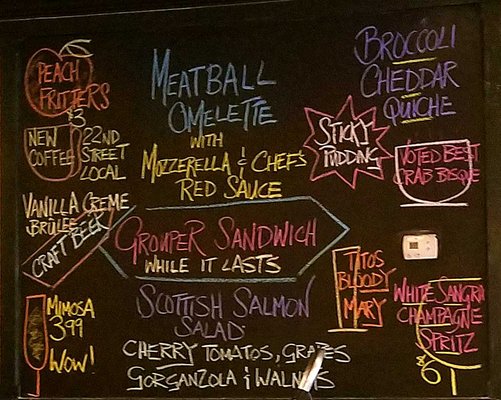 PEACH
FRITTERS
$3
NEW
COFFEE
22ND
STREET
LOCAL
VANILLA CREME
BRÛLEE
CRAFT BEER
MIMOSA
3.99
WOW!
MEATBALL
OMELETTE
WITH
MOZZERELLA & CHEF'S
RED SAUCE
GROUPER SANDWICH
WHILE IT LASTS
SCOTTISH SALMON
SALAD
CHERRY TOMATOS, GRAPES
GORGANZOLA & WALNUTS
BROCCOLI
CHEDDAR
QUICHE
STICKY
PUDDING
VOTED BEST
CRAB BISQUE
TITOS
BLOODY
MARY
WHITE SANGRIA
CHAMPAGNE
SPRITZ